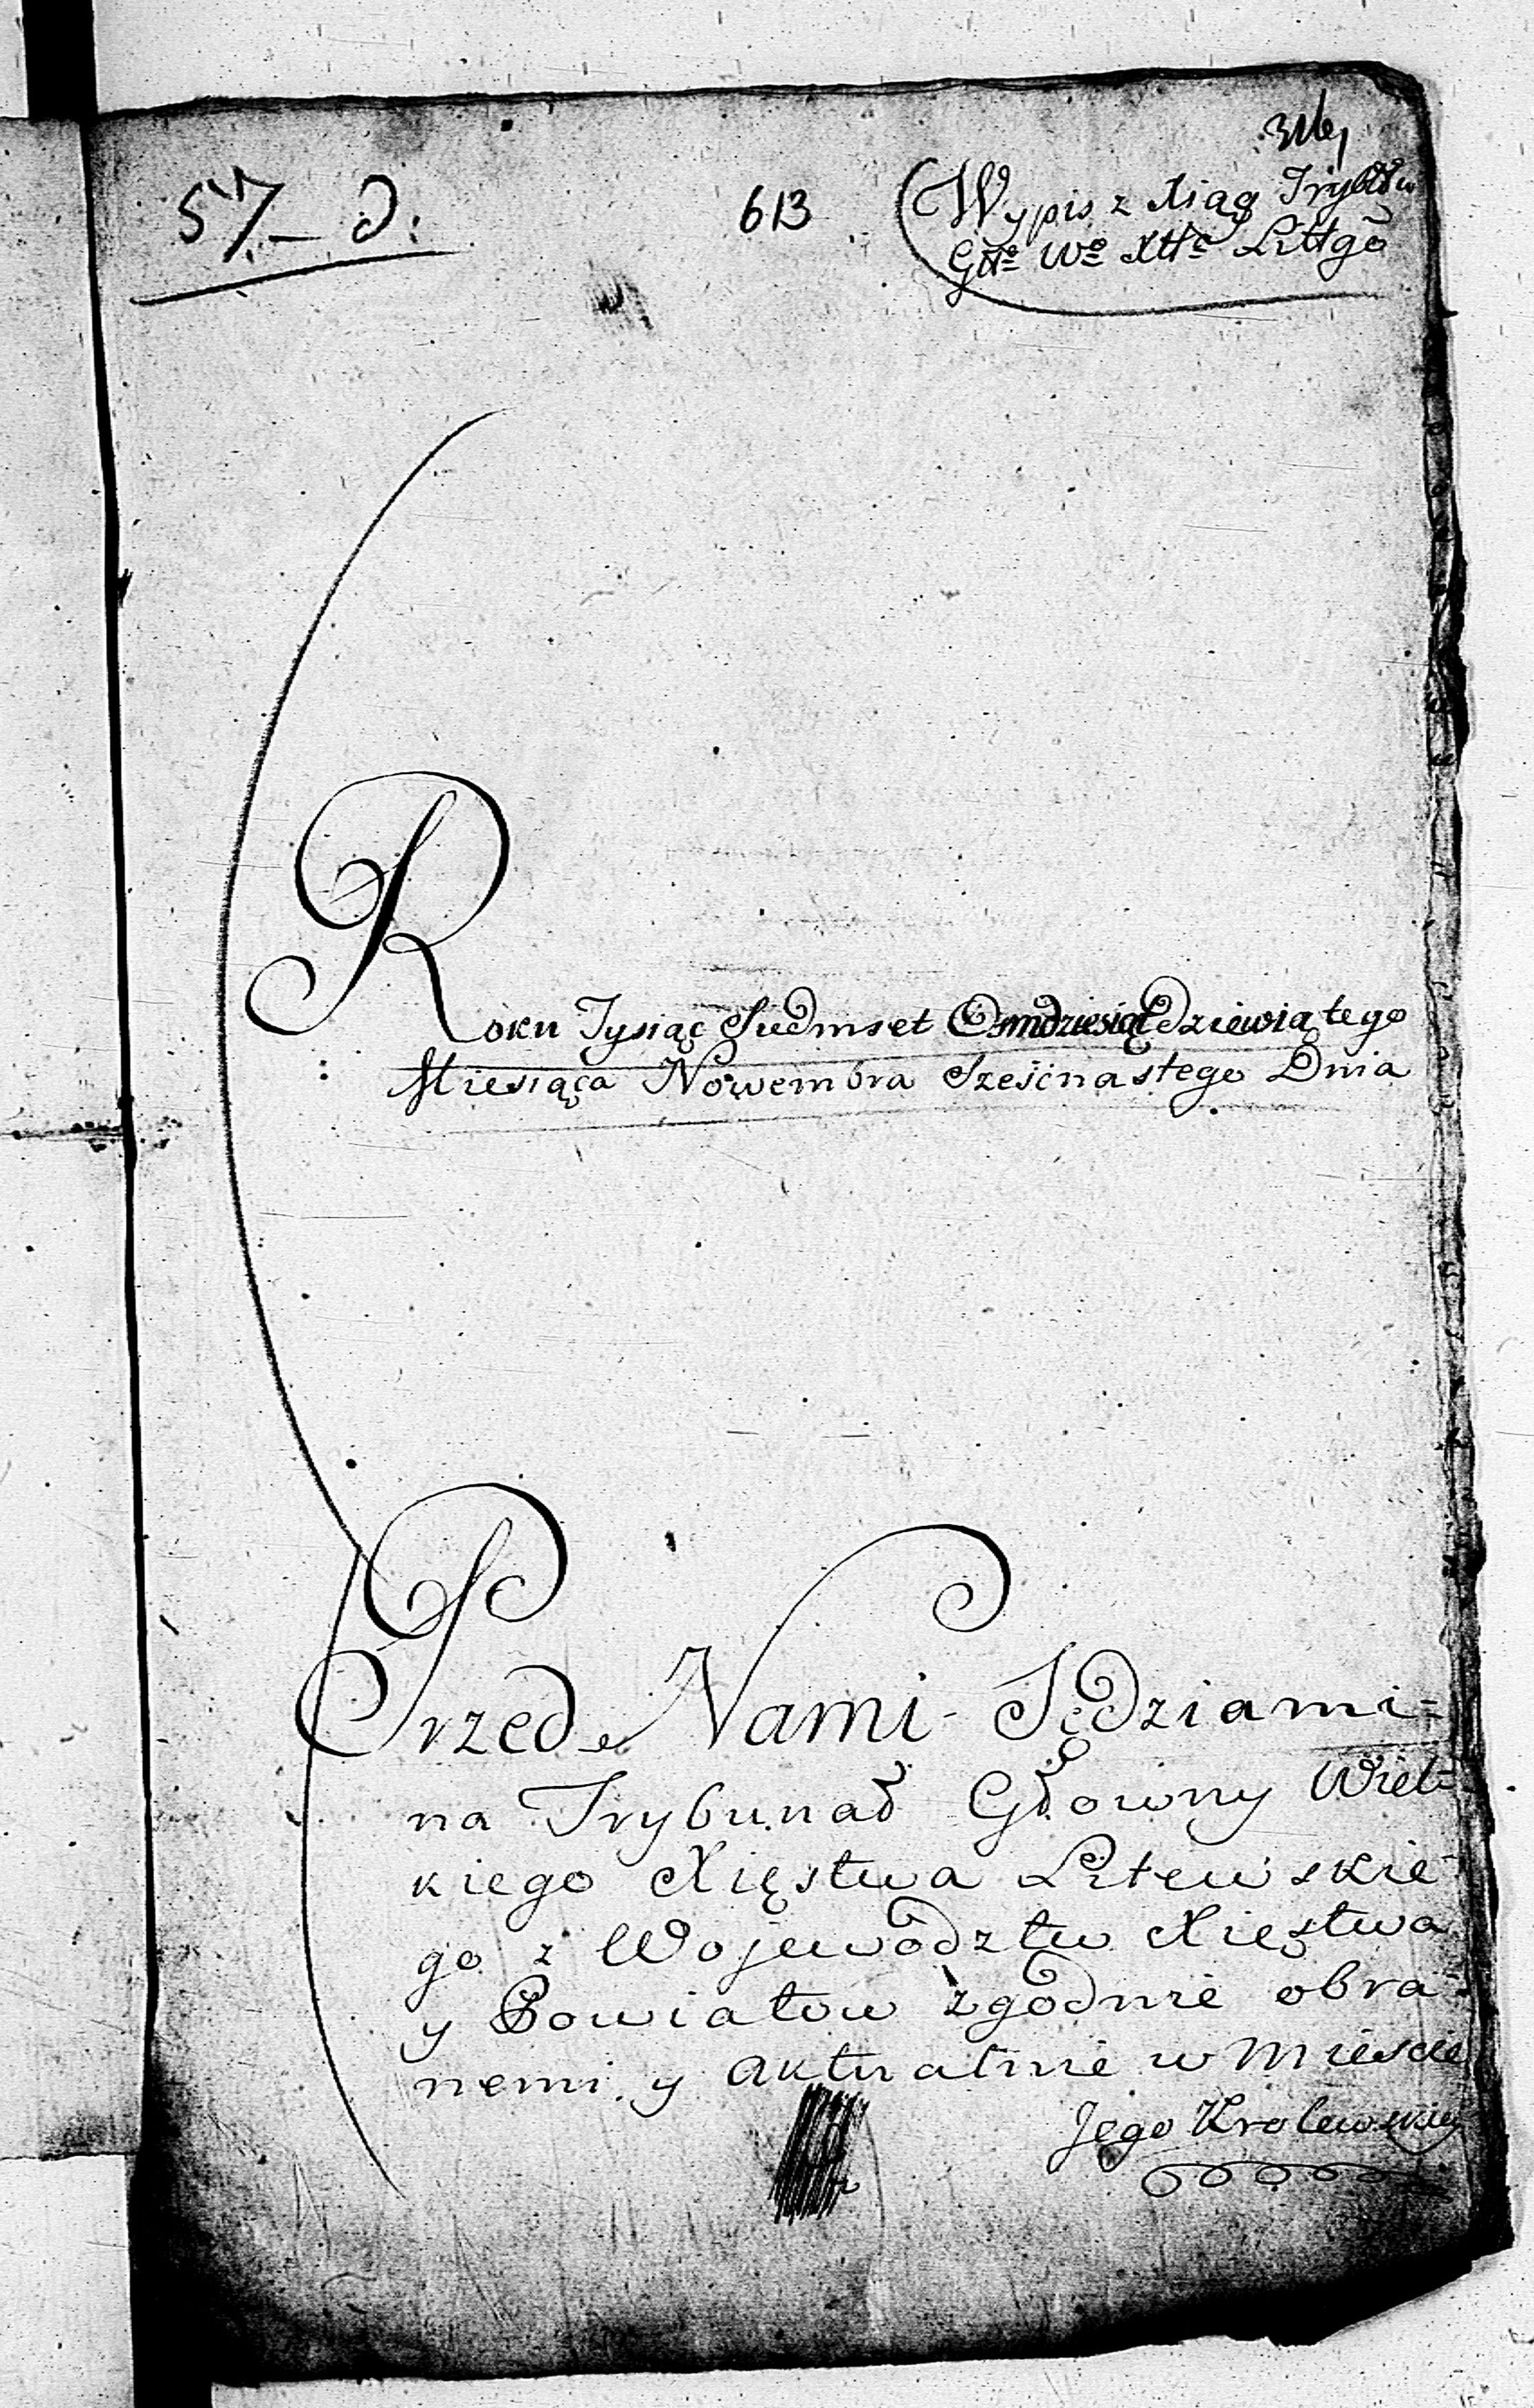 57 – D.
613
Wypis z Xiąg Trybłłu
Głłº Wº Xttª Littgo
Roku Tysiąc Siedmset Osmdziesiąt dziewiątego
Miesiąca Nowembra Szesnastego Dnia
Przed Nami Sędziami=
na Trybunał Głowny Wiel=
kiego Xięstwa Litewskie=
go z Wojewodztw Xięstwa
y Powiatow zgodnie obra=
nemi y aktualnie w Mieście
Jego Krolewskiey